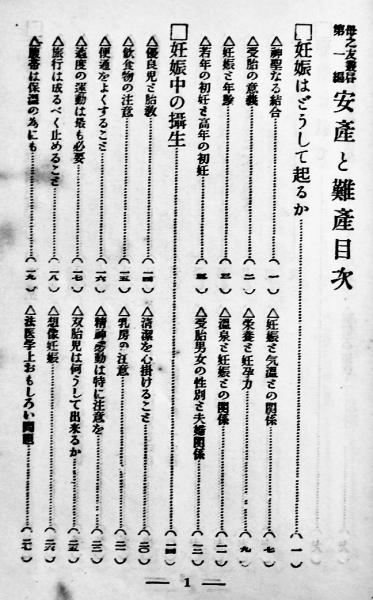 母之友叢書
第一編
安產と難產目次
□妊娠はどうして起るか…………(一)
△神聖なる結合…………(一)
△妊娠と気温との関係…………(七)
△受胎の意義…………(二)
△栄養と妊孕力…………(九)
△妊娠と年齢…………(三)
△温泉と妊娠との関係…………(一一)
△若年の初妊と高年の初妊…………
△受胎男女の性別と夫婦関係…………
□妊娠中の攝生…………(一四)
△優良児と胎教…………(一四)
△清潔を心掛けること…………(二〇)
△飲食物の注意…………(一五)
△乳房の注意…………
△便通をよくすること…………(一六)
△精神労動は特に注意を…………
△適度の運動は最も必要…………(一七)
△双胎児は何うして出来るか…………(二五)
△旅行は成るべく止めること…………(一八)
△想像妊娠…………(二六)
△腹帯は保温の為にも…………(一九)
△法医学上おもしろい問題…………(二七)
1